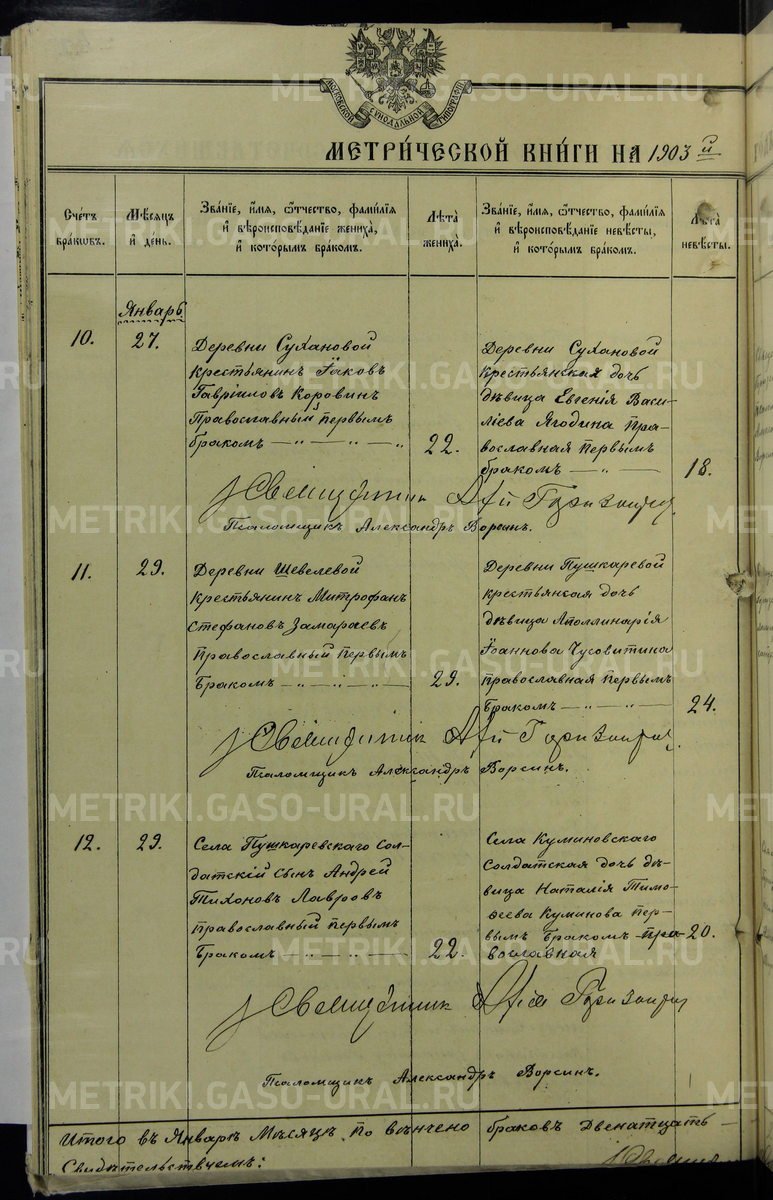 МОСКОВСКОЙ СѴНОДАЛЬНОЙ ТИПОГРАФІИ
МЕТРИ́ЧЕСКОЙ КНИ́ГИ НА 1903 й
Счётъ бра́кѡвъ.
Мѣ́сяцъ и҆ де́нь.
Зва́нїе, и҆́мя, ѻ҆́тчество, фами́лїя и҆ вѣроисповѣ́данїе жениха̀, и҆ кото́рымъ бра́комъ.
Лѣ́та жениха̀.
Зва́нїе, и҆́мя, ѻ҆́тчество, фами́лїя и҆ вѣроисповѣ́данїе невѣ́сты, и҆ кото́рымъ бра́комъ.
Лѣ́та невѣ́сты.
Январь
10.
27.
Деревни Сухановой
крестьянинъ Іаковъ
Гавріиловъ Коровинъ
Православный первымъ
бракомъ — „ — „ — „
22.
Деревни Сухановой
крестьянская дочь
дѣвица Евгенія Васи-
ліева Ягодина пра-
вославная первымъ
бракомъ — „ —
18.
Священник
Псаломщикъ Александръ Ворсинъ.
11.
29.
Деревни Шевелевой
крестьянинъ Митрофанъ
Стефановъ Замараевъ
православный первымъ
бракомъ — „ — „ — „ —
29.
Деревни Пушкаревой
крестьянская дочь
дѣвица Аполлинарія
Іоаннова Чусовитина
православная первымъ
бракомъ — „ — „ —
24.
Священник
Псаломщикъ Александръ Ворсинъ.
12.
29.
Села Пушкаревскаго сол-
датскій сынъ Андрей
Тихоновъ Лавровъ
православный первымъ
бракомъ — „ — „ — „ —
22.
Села Куминовскаго
солдатская дочь дѣ-
вица Наталія Тимо-
ѳеева Куминова пер-
вымъ бракомъ пра-
вославная
20.
Священник
Псаломщикъ Александръ Ворсинъ.
Итого въ Январѣ Мѣсяцѣ повѣнчено браковъ двенатцать —
Свидѣтельствуемъ:
METRIKI.GASO-URAL.RU